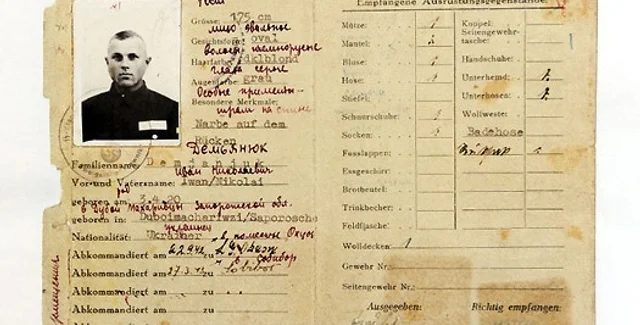 Größe: 175 cm
лицо овальное
Gesichtsform: oval
волосы
Haarfarbe: dklblond
глаза серые
Augenfarbe: grau
Особые приметы -
Besondere Merkmale:
шрам на спине
Narbe auf dem
Rücken
Демьянюк
Familienname: Demjanjuk
Иван Николаевич
Vor- und Vatersname: Iwan/Nikolai
род
geboren am 3.4.20
geboren in: Duboimachariwzi/Saporosche
украинец
Nationalität: Ukrainer
Abkommandiert am 22.9.42 zu L.G. Okzow
в Собибор
Abkommandiert am 27.3.43 zu Sobibor
Abkommandiert am zu
Abkommandiert am zu
Abkommandiert am zu
Empfangene Ausrüstungsgegenstände
Mütze: 1 Koppel:
Mantel: Seitengewehr-tasche:
Bluse: 1 Handschuhe:
Hose: Unterhemd:
Stiefel: Unterhosen:
Schnürschuhe: Wollweste:
Socken: Badehose
Fusslappen:
Essgeschirr:
Brotbeutel:
Trinkbecher:
Feldflasche:
Wolldecken: 1
Gewehr Nr.
Seitengewehr Nr.
Ausgegeben: Richtig empfangen: